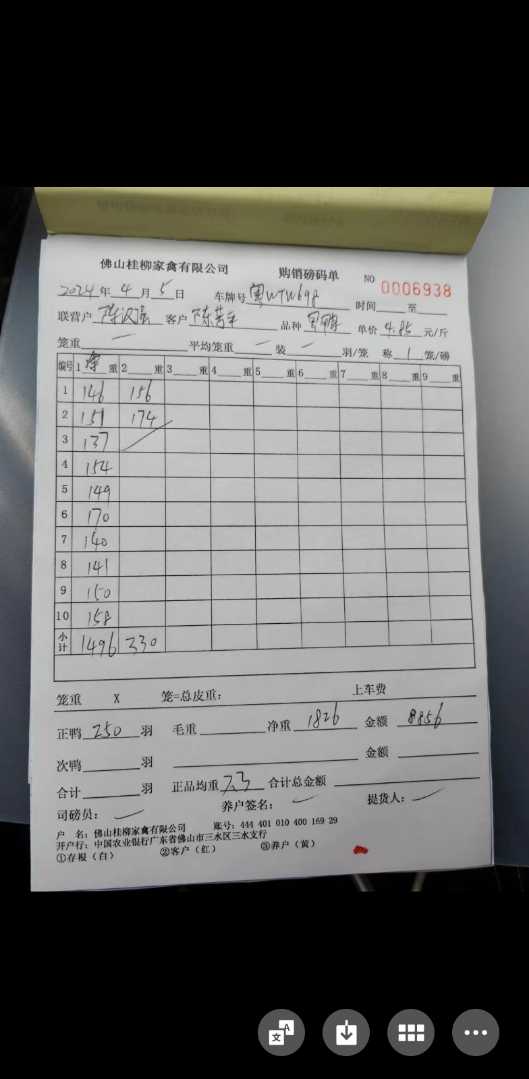 佛山桂柳家禽有限公司 购销磅码单 NO 0006938
2024年 4月 5日 车牌号 粤WTW698 时间 至
联营户 客户 品种 单价 4.85 元/斤
笼重 平均笼重 装 羽/笼 称 1 笼/磅
编号 1 重 2 重 3 重 4 重 5 重 6 重 7 重 8 重 9 重
1 146 156
2 151 174
3 137
4 154
5 149
6 170
7 140
8 141
9 150
10 158
小计 1496 330
笼重 X 笼=总皮重: 上车费
正鸭 250 羽 毛重 净重 1826 金额 8856
次鸭 羽 金额
合计 羽 正品均重 7.3 合计总金额
司磅员: 养户签名: 提货人:
户 名: 佛山桂柳家禽有限公司 账号: 444 401 010 400 169 29
开户行: 中国农业银行广东省佛山市三水区三水支行
①存根(白) ②客户(红) ③养户(黄)